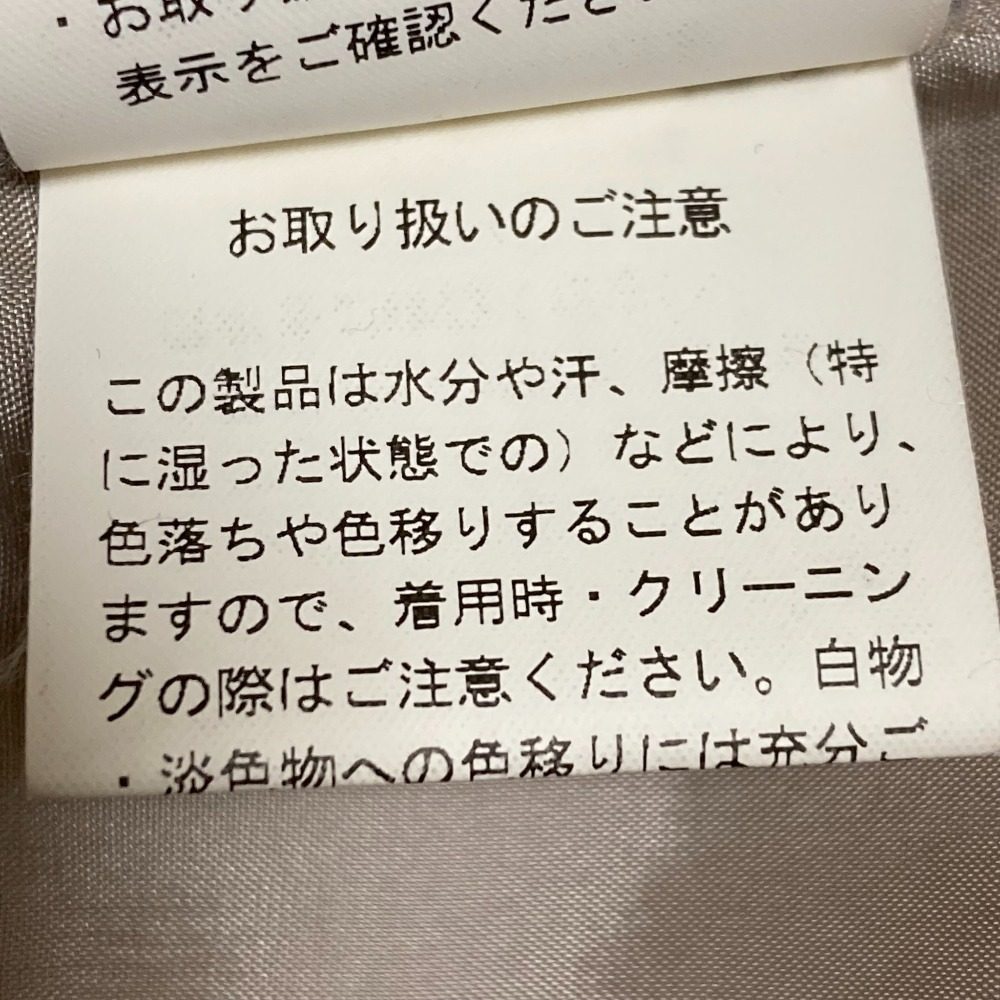 ・お取り
表示をご確認ください
お取り扱いのご注意
この製品は水分や汗、摩擦（特
に湿った状態での）などにより、
色落ちや色移りすることがあり
ますので、着用時・クリーニン
グの際はご注意ください。白物
・淡色物への色移りには充分ご